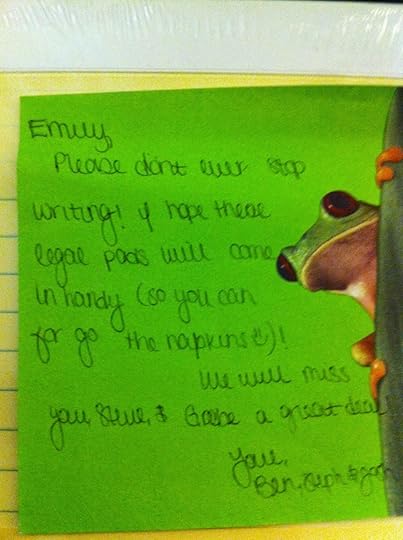 Emily,
Please don't ever stop
writing! I hope these
legal pads will come
in handy (so you can
for go the napkins ☺)!
We will miss
you, Steve, & Gabe a great deal
Love,
Ben, Steph & Josh